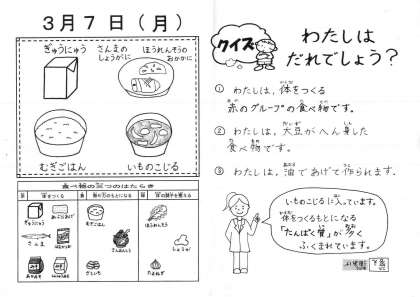 3月7日(月)
ぎゅうにゅう
さんまの
しょうがに
ほうれんそうの
おかかに
むぎごはん
いものこじる
食べ物の三つのはたらき
赤 体をつくる
黄 熱や力のもとになる
緑 体の調子を整える
ぎゅうにゅう
あぶらあげ
さんま
みそ
むぎごはん
さといも
たまねぎ
しょうが
クイズ
わたしは
だれでしょう?
① わたしは、体をつくる
赤のグループの食べ物です。
② わたしは、大豆がへん身した
食べ物です。
③ わたしは、油であげて作られます。
いものこじるに入っています。
体をつくるもとになる
「たんぱく質」が多く
ふくまれています。